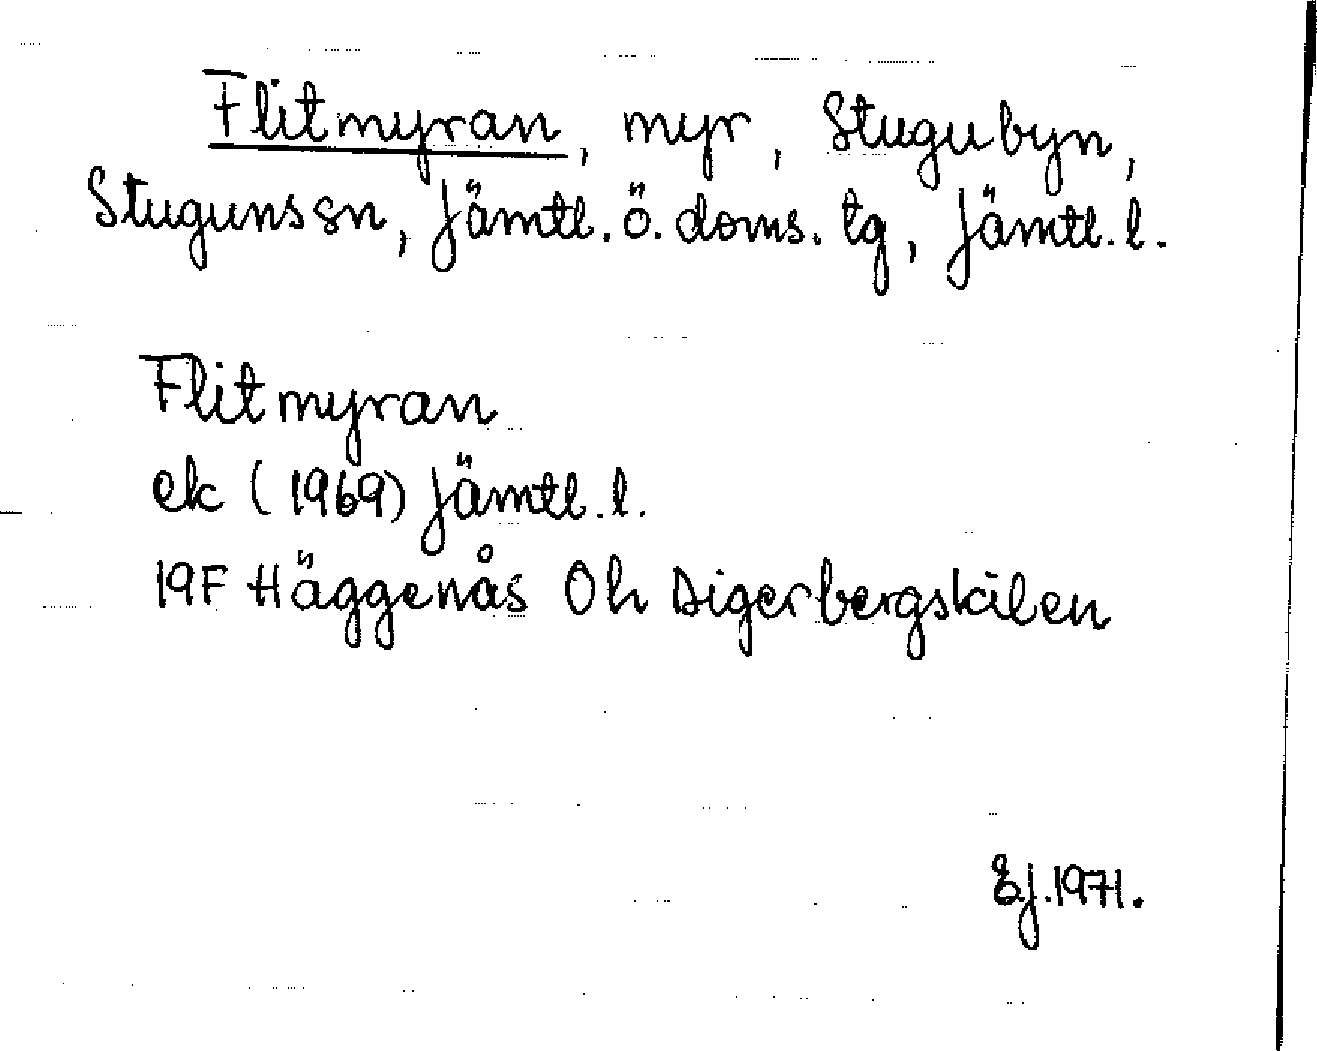 Flitmyran, myr, Stugubyn,
Stuguns sn, Jämtl. ö. doms. tg, Jämtl. l.
Flitmyran
ek (1969) Jämtl. l.
19F Häggenås Oh Digerbergskälen
E.J. 1971.